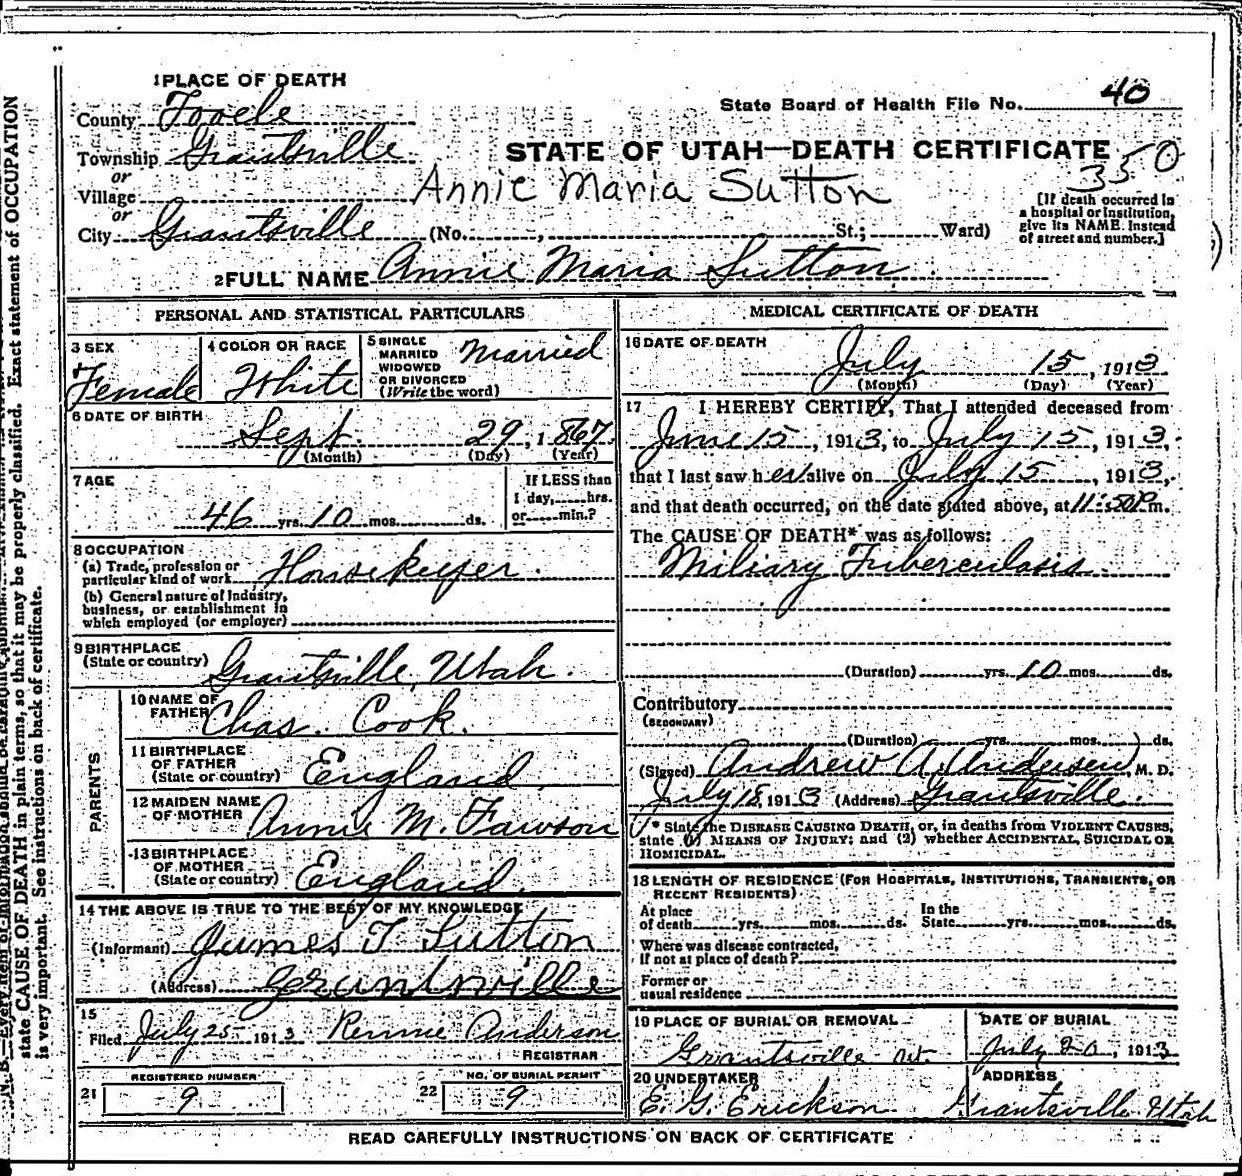 1 PLACE OF DEATH
State Board of Health File No. 40
County Tooele
Township Grantsville
STATE OF UTAH—DEATH CERTIFICATE
350
or
Village
Annie Maria Sutton
or
City Grantsville (No. , St.; Ward)
[If death occurred in
a hospital or institution,
give its NAME instead
of street and number.]
2 FULL NAME Annie Maria Sutton
PERSONAL AND STATISTICAL PARTICULARS
3 SEX
Female
4 COLOR OR RACE
White
5 SINGLE
MARRIED
WIDOWED
OR DIVORCED
(Write the word)
Married
6 DATE OF BIRTH
Sept. 29, 1867
(Month) (Day) (Year)
7 AGE
46 yrs. 10 mos. ds.
If LESS than
1 day, hrs.
or min.?
8 OCCUPATION
(a) Trade, profession or
particular kind of work Housekeeper.
(b) General nature of industry,
business, or establishment in
which employed (or employer)
9 BIRTHPLACE
(State or country) Grantsville, Utah.
PARENTS
10 NAME OF
FATHER Chas. Cook.
11 BIRTHPLACE
OF FATHER
(State or country) England
12 MAIDEN NAME
OF MOTHER Annie M. Fawson
13 BIRTHPLACE
OF MOTHER
(State or country) England.
14 THE ABOVE IS TRUE TO THE BEST OF MY KNOWLEDGE
(Informant) James T Sutton
(Address) Grandsville
15
Filed July 25 1913 Rennie Anderson
REGISTRAR
REGISTERED NUMBER
21 9
NO. OF BURIAL PERMIT
22 9
MEDICAL CERTIFICATE OF DEATH
16 DATE OF DEATH
July 15, 1913
(Month) (Day) (Year)
17 I HEREBY CERTIFY, That I attended deceased from
June 15, 1913, to July 15, 1913,
that I last saw her alive on July 15, 1913,
and that death occurred, on the date stated above, at 11:50 P.m.
The CAUSE OF DEATH* was as follows:
Miliary Tuberculosis.
(Duration) yrs. 10 mos. ds.
Contributory
(SECONDARY)
(Duration) yrs. mos. ds.
(Signed) Andrew A. Andersen, M. D.
July 18, 1913 (Address) Grantsville.
* State the DISEASE CAUSING DEATH, or, in deaths from VIOLENT CAUSES,
state (1) MEANS OF INJURY; and (2) whether ACCIDENTAL, SUICIDAL OR
HOMICIDAL.
18 LENGTH OF RESIDENCE (FOR HOSPITALS, INSTITUTIONS, TRANSIENTS, OR
RECENT RESIDENTS)
At place
of death yrs. mos. ds.
In the
State yrs. mos. ds.
Where was disease contracted,
if not at place of death?
Former or
usual residence
19 PLACE OF BURIAL OR REMOVAL
Grantsville Ut
DATE OF BURIAL
July 20, 1913
20 UNDERTAKER
E. G. Erickson
ADDRESS
Grantsville Utah
READ CAREFULLY INSTRUCTIONS ON BACK OF CERTIFICATE
state CAUSE OF DEATH in plain terms, so that it may be properly classified. Exact statement of OCCUPATION
is very important. See instructions on back of certificate.